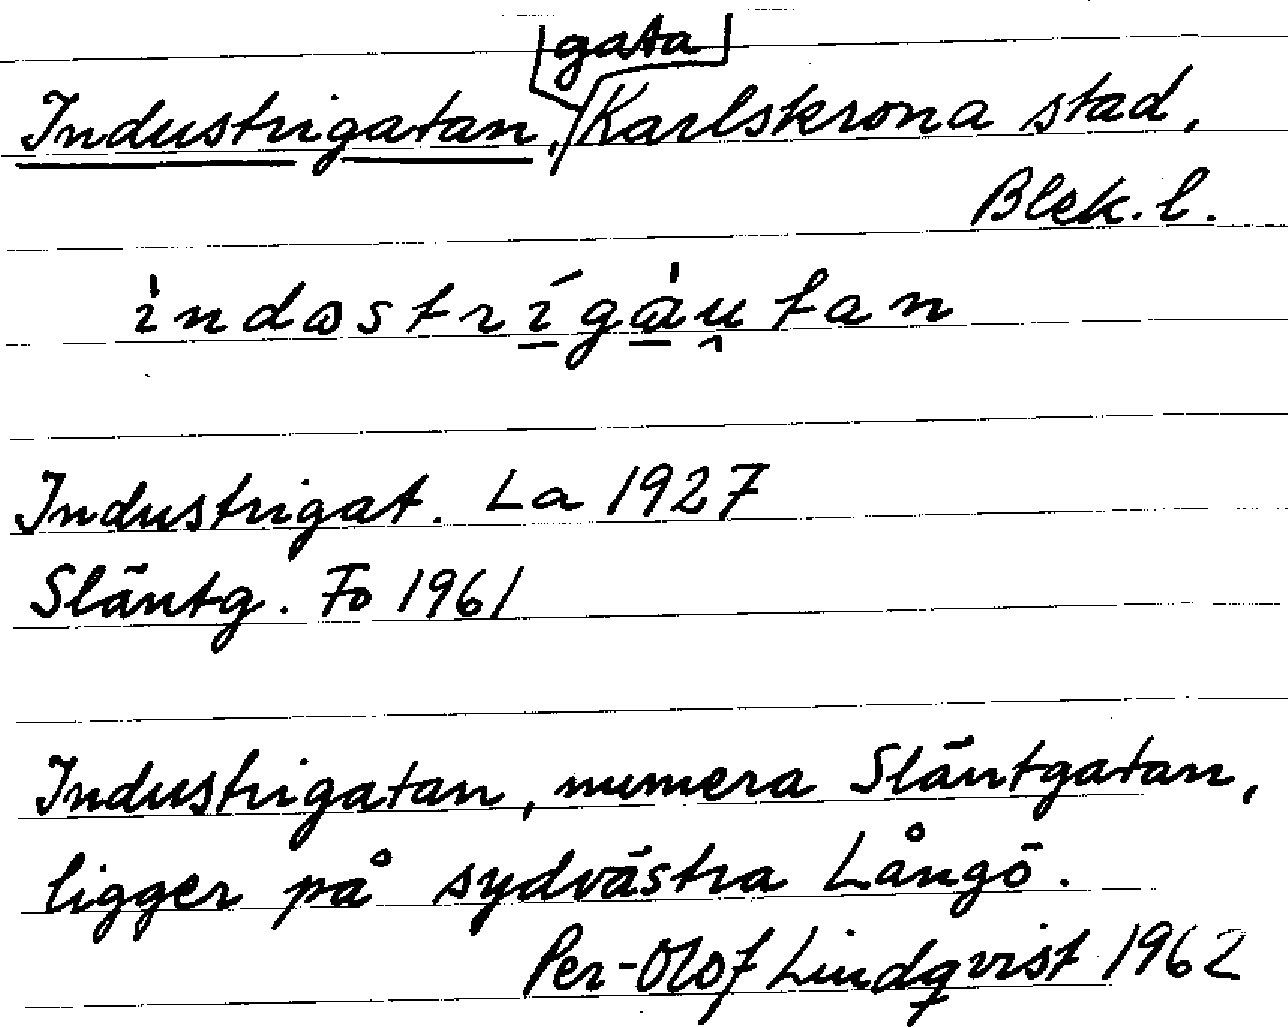 gata
Industrigatan, Karlskrona stad,
Blek. l.
Industrigat. La 1927
Släntg. Fo 1961
Industrigatan, numera Släntgatan,
ligger på sydvästra Långö.
Per-Olof Lindqvist 1962